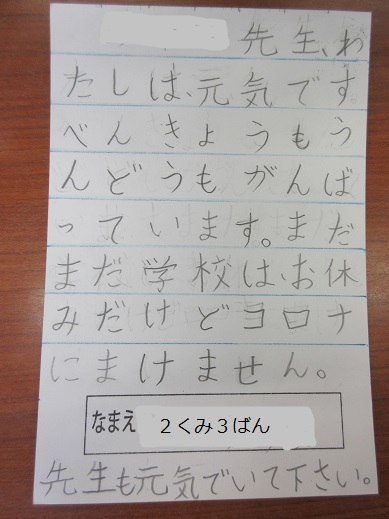 先生、わ
たしは、元気です
べんきょうもう
んどうもがんば
っています。まだ
まだ学校は、お休
みだけどヨロナ
にまけません。
なまえ 2くみ3ばん
先生も元気でいて下さい。